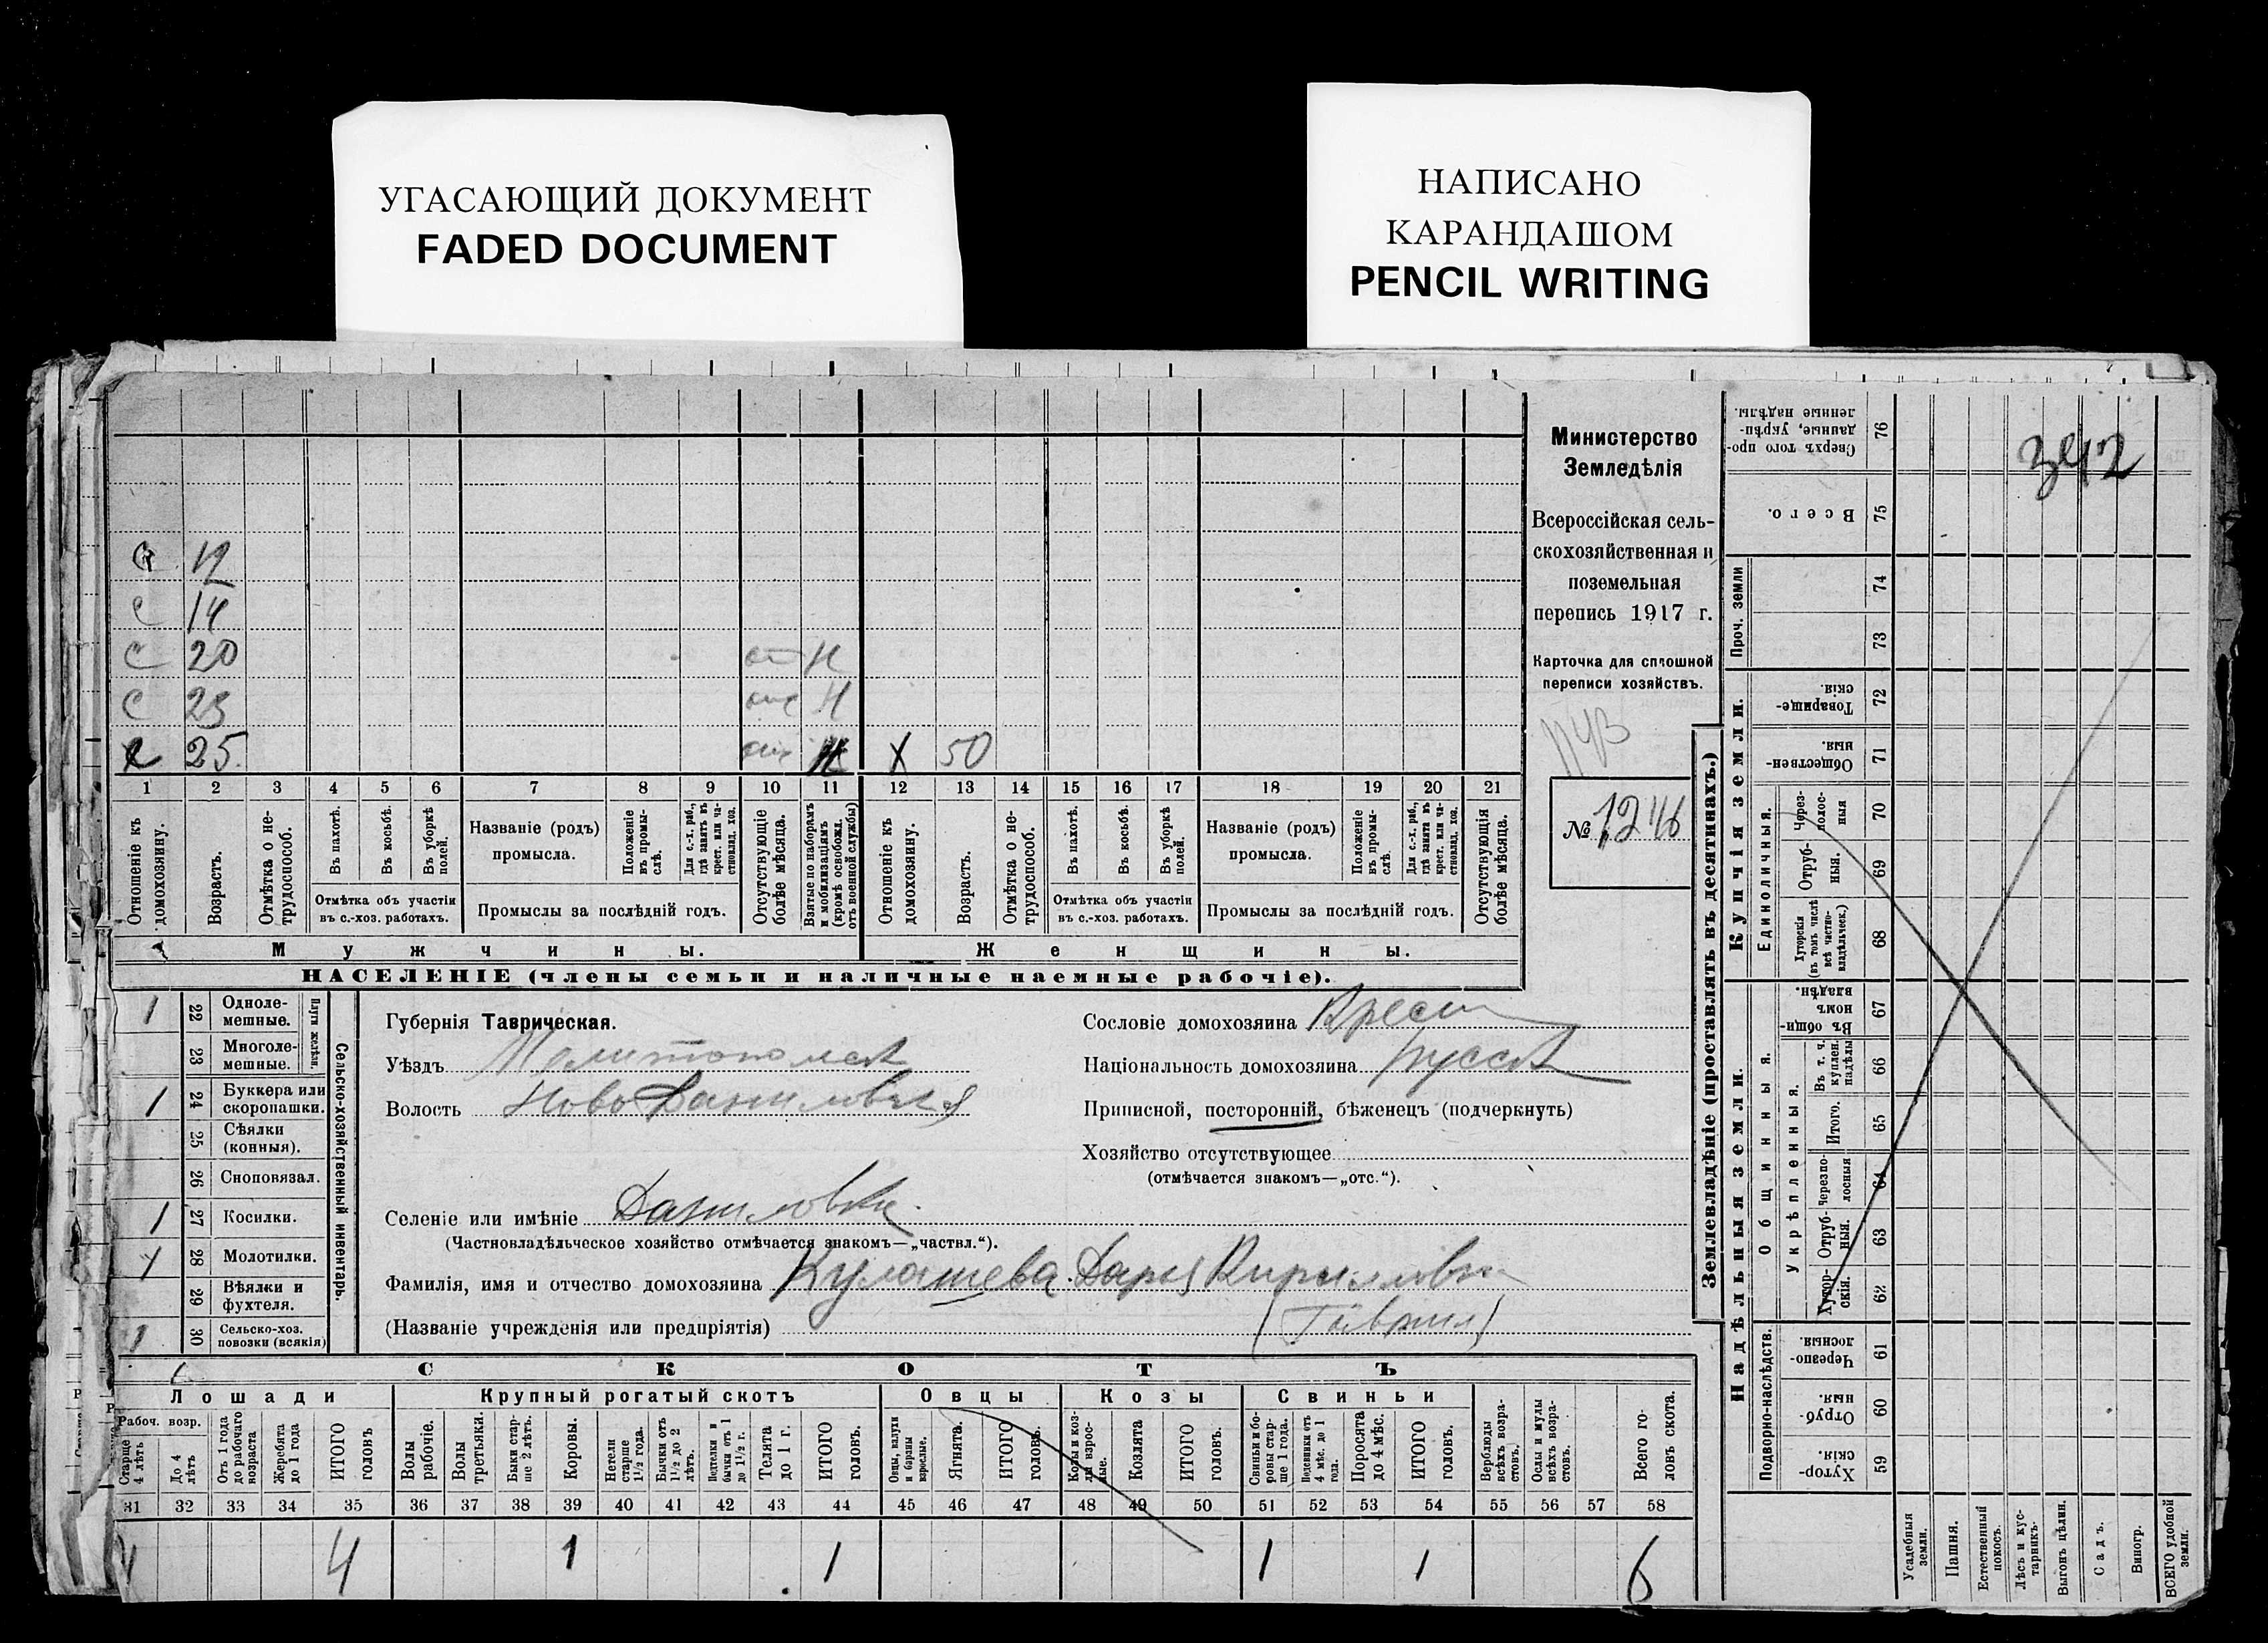 УГАСАЮЩИЙ ДОКУМЕНТ
FADED DOCUMENT
НАПИСАНО
КАРАНДАШОМ
PENCIL WRITING
Министерство
Земледѣлія
Всероссійская сель-
скохозяйственная и
поземельная
перепись 1917 г.
Карточка для сплошной
переписи хозяйствъ.
№ 1246
С 12
С 14
С 20 Н
С 23 Н
25 Н Х 50
1 2 3 4 5 6 7 8 9 10 11 12 13 14 15 16 17 18 19 20 21
Отношеніе къ домохозяину.
Возрастъ.
Отмѣтка о не-трудоспособ.
Въ пахотѣ.
Въ косьбѣ.
Въ уборкѣ полей.
Отмѣтка объ участіи
въ с.-хоз. работахъ.
Названіе (родъ)
промысла.
Положеніе въ промы-слѣ.
Для с.-х. раб., гдѣ занятъ въ крест. или ча-стновлад. хоз.
Промыслы за послѣдній годъ.
Отсутствующіе болѣе мѣсяца.
Взятые по наборамъ и мобилизаціямъ (кромѣ освобожд. отъ военной службы)
Отношеніе къ домохозяину.
Возрастъ.
Отмѣтка о не-трудоспособ.
Въ пахотѣ.
Въ косьбѣ.
Въ уборкѣ полей.
Отмѣтка объ участіи
въ с.-хоз. работахъ.
Названіе (родъ)
промысла.
Положеніе въ промы-слѣ.
Для с.-х. раб., гдѣ занята въ крест. или ча-стновлад. хоз.
Промыслы за послѣдній годъ.
Отсутствующія болѣе мѣсяца.
Мужчины. Женщины.
НАСЕЛЕНІЕ (члены семьи и наличные наемные рабочіе).
1 22 Одноле-мешные.
23 Многоле-мешные.
Плуги желѣзн.
1 24 Буккера или скоропашки.
25 Сѣялки (конныя).
26 Сноповязал.
1 27 Косилки.
1 28 Молотилки.
29 Вѣялки и фухтеля.
1 30 Сельско-хоз. повозки (всякія)
Сельско-хозяйственный инвентарь.
Губернія Таврическая.
Уѣздъ Мелитопольск
Волость Ново Даниловская
Селеніе или имѣніе Даниловка
(Частновладѣльческое хозяйство отмѣчается знакомъ—„частвл.“).
Фамилія, имя и отчество домохозяина Кулашева Дарья Кириловна
(Названіе учрежденія или предпріятія) (Гаврил)
Сословіе домохозяина Крест
Національность домохозяина русск
Приписной, посторонній, бѣженецъ (подчеркнуть)
Хозяйство отсутствующее
(отмѣчается знакомъ—„отс.“).
СКОТЪ
Лошади Крупный рогатый скотъ Овцы Козы Свиньи
Рабоч. возр.
Старше 4 лѣтъ
До 4 лѣтъ
Отъ 1 года до рабочаго возраста
Жеребята до 1 года
ИТОГО головъ
Волы рабочіе.
Волы третьяки.
Быки стар-ше 2 лѣтъ.
Коровы.
Нетели старше 1½ года.
Бычки отъ 1½ до 2 лѣтъ.
Подтелки и бычки отъ 1 до 1½ г.
Телята до 1 г.
ИТОГО головъ.
Овцы, валухи и бараны взрослые.
Ягнята.
ИТОГО головъ.
Козы и коз-лы взрос-лые.
Козлята
ИТОГО головъ.
Свиньи и бо-ровы стар-ше 1 года.
Подсвинки отъ 4 мѣс. до 1 года.
Поросята до 4 мѣс.
ИТОГО головъ.
Верблюды всѣхъ возра-стовъ.
Ослы и мулы всѣхъ возра-стовъ.
Всего го-ловъ скота.
31 32 33 34 35 36 37 38 39 40 41 42 43 44 45 46 47 48 49 50 51 52 53 54 55 56 57 58
4 4 1 1 1 1 6
Землевладѣніе (проставлять въ десятинахъ.)
Сверхъ того про-данные, укрѣп-ленные надѣлы. 76
Всего. 75
Проч. земли
74
73
Купчія земли.
Товарище-скія. 72
Обществен-ныя. 71
Единоличныя.
Через-полос-ныя 70
Отруб-ныя. 69
Хуторскія (въ томъ числѣ всѣ частно-владѣльческ.) 68
Надѣльныя земли.
Общинныя.
Въ общи-номъ владѣн. 67
Укрѣпленныя.
Въ т. ч. куплен. надѣлы 66
Итого. 65
Черезпо-лосныя 64
Отруб-ныя. 63
Хутор-скія. 62
Подворно-наслѣдств.
Черезпо-лосныя 61
Отруб-ныя. 60
Хутор-скія. 59
Усадебныя земли.
Пашня.
Естественный покосъ.
Лѣсъ и кус-тарникъ.
Выгонъ цѣлин.
Садъ.
Виногр.
ВСЕГО удобной земли.